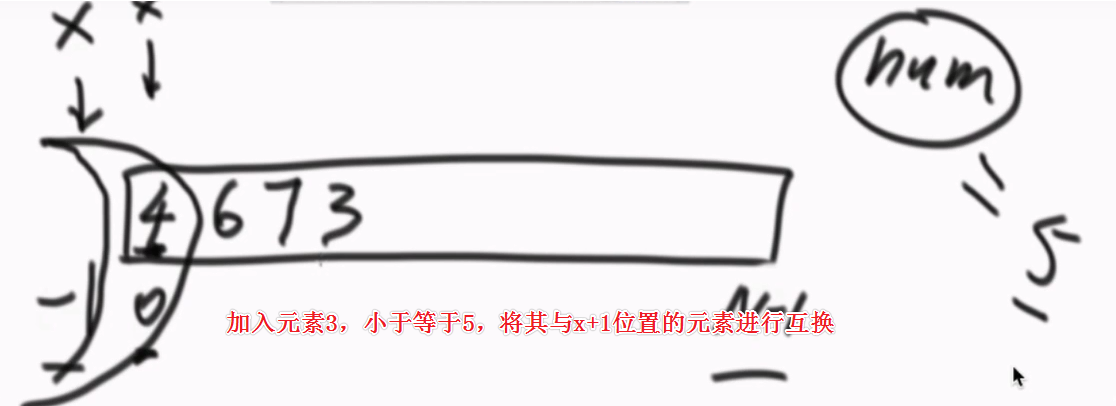 x x
num
4 6 7 3
5
-1 0
加入元素3，小于等于5，将其与x+1位置的元素进行互换